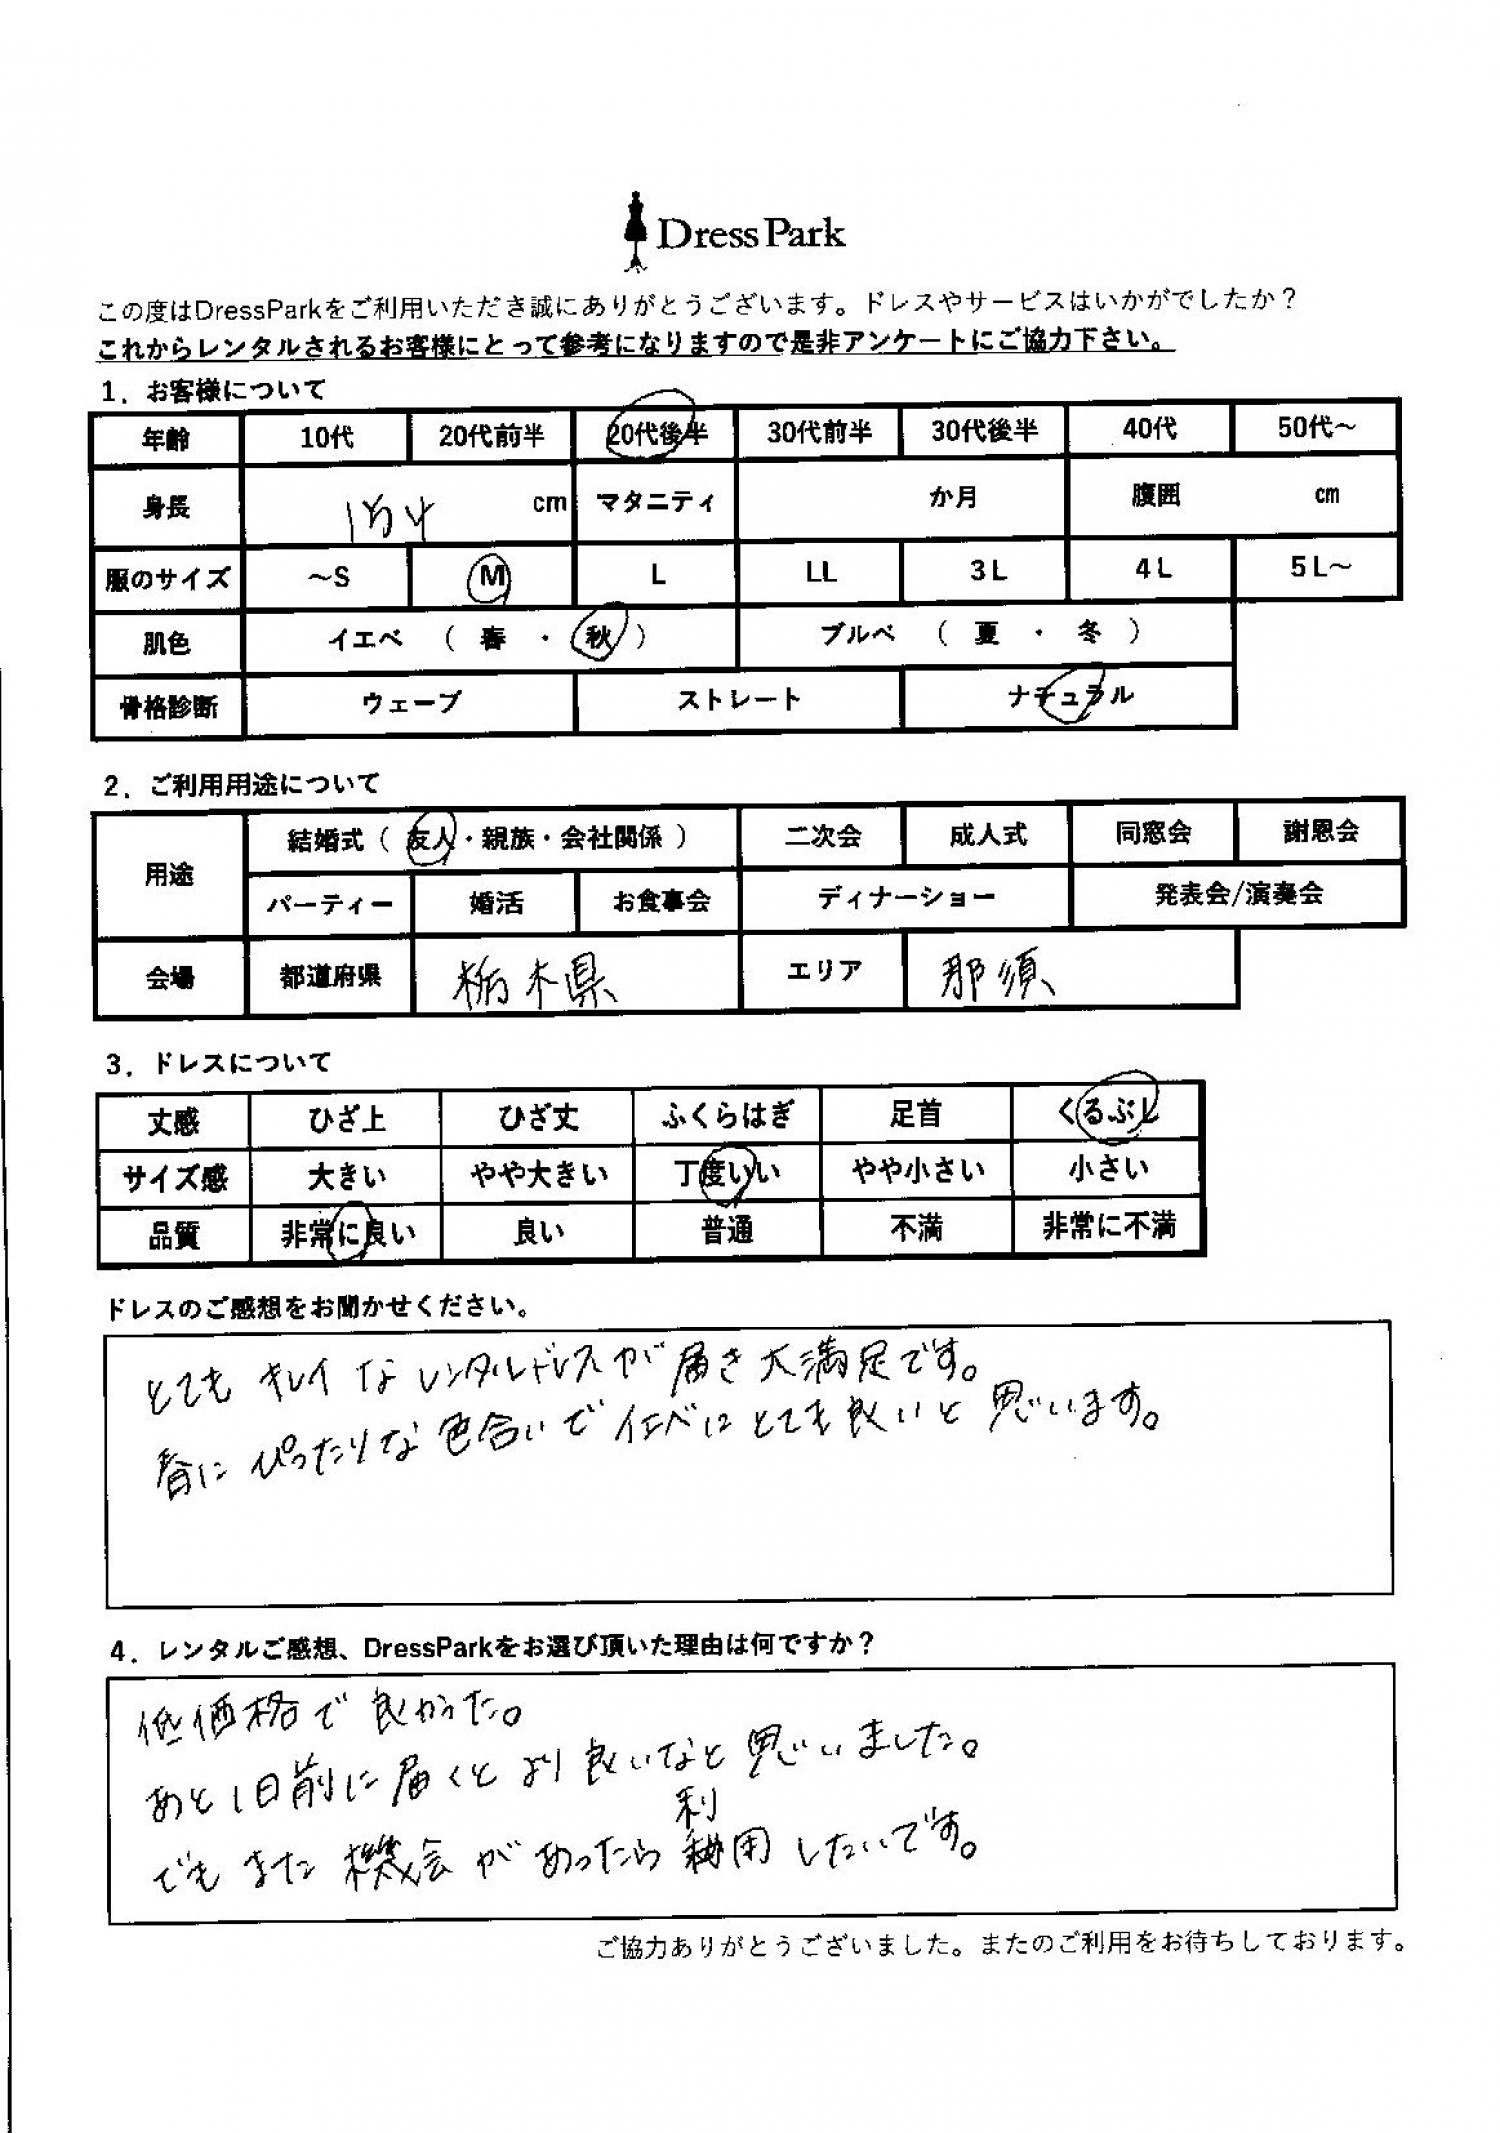 Dress Park
この度はDressParkをご利用いただき誠にありがとうございます。ドレスやサービスはいかがでしたか？
これからレンタルされるお客様にとって参考になりますので是非アンケートにご協力下さい。
1．お客様について
年齢 10代 20代前半 20代後半 30代前半 30代後半 40代 50代～
身長 154 cm マタニティ か月 腹囲 cm
服のサイズ ～S M L LL 3L 4L 5L～
肌色 イエベ （ 春 ・ 秋 ） ブルベ （ 夏 ・ 冬 ）
骨格診断 ウェーブ ストレート ナチュラル
2．ご利用用途について
用途 結婚式（ 友人・親族・会社関係 ） 二次会 成人式 同窓会 謝恩会
パーティー 婚活 お食事会 ディナーショー 発表会/演奏会
会場 都道府県 栃木県 エリア 那須
3．ドレスについて
丈感 ひざ上 ひざ丈 ふくらはぎ 足首 くるぶし
サイズ感 大きい やや大きい 丁度いい やや小さい 小さい
品質 非常に良い 良い 普通 不満 非常に不満
ドレスのご感想をお聞かせください。
とても キレイ な レンタルドレスが 届き 大満足です。
春に ぴったりな 色合いで イエベに とても 良いと 思います。
4．レンタルご感想、DressParkをお選び頂いた理由は何ですか？
低価格で 良かった。
あと1日前に 届くと より 良いなと 思いました。
でも また 機会が あったら 利用 したいです。
ご協力ありがとうございました。またのご利用をお待ちしております。